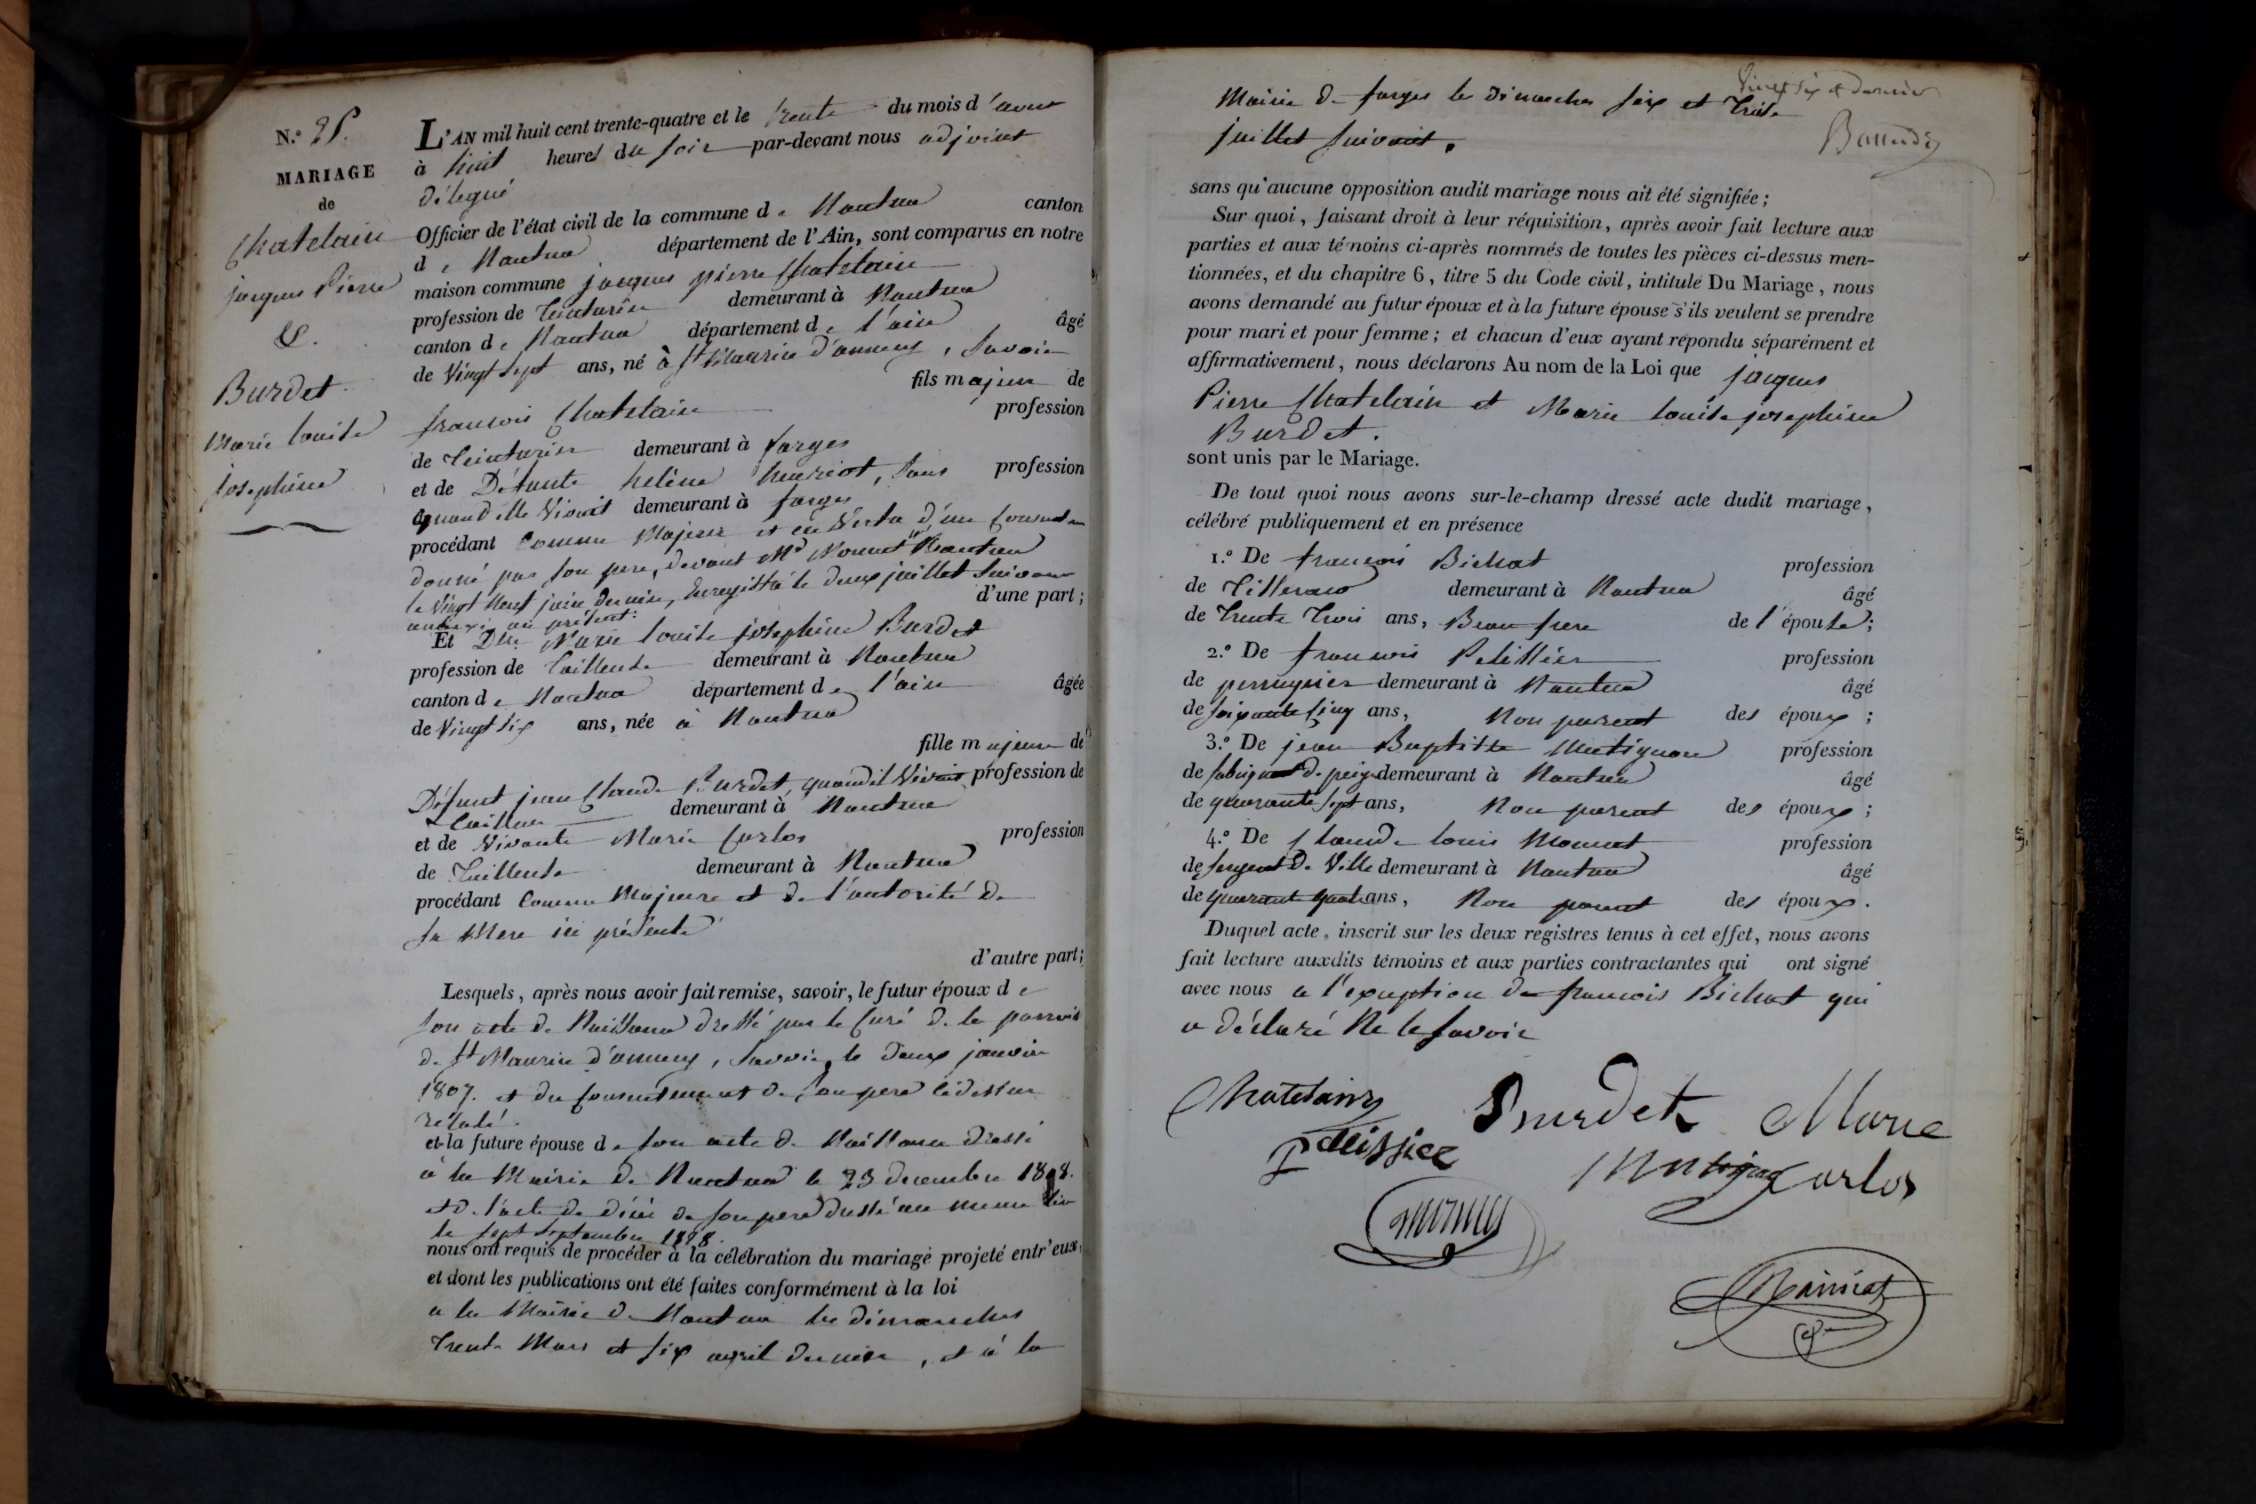 N.º 25.
MARIAGE
de
Chatelain
jacques Pierre
&.
Burdet
Marie louise
josephine
L'AN mil huit cent trente-quatre et le trente du mois d'aout
à huit heures du soir par-devant nous adjoint
délegué
Officier de l'état civil de la commune de Nantua canton
de Nantua département de l'Ain, sont comparus en notre
maison commune jacques pierre Chatelain
profession de teinturier demeurant à Nantua
canton de Nantua département de l'ain âgé
de Vingt sept ans, né à St Maurice d'annecy, Savoie
fils majeur de
francois Chatelain profession
de teinturier demeurant à farges
et de Défunte helène henriot, sans profession
quand elle Vivoit demeurant à farges
procédant Comme Majeur et en Vertu d'un Consentem
donné par son pere, devant Me Monnet Nantua
le Vingt Neuf juin dernier, Enregistré le deux juillet Suivant
annexé au présent. d'une part;
Et Dlle Marie louise josephine Burdet
profession de tailleuse demeurant à Nantua
canton de Nantua département de l'ain âgée
de Vingt six ans, née à Nantua
fille majeure de
Défunt jean Claude Burdet, quand il Vivait profession de
tailleur demeurant à Nantua
et de Vivante Marie Carlos profession
de Tailleuse demeurant à Nantua
procédant Comme Majeure et de l'autorité de
sa Mere ici présente
d'autre part;
Lesquels, après nous avoir fait remise, savoir, le futur époux de
son acte de Naissance dressé par le Curé de la parroisse
de St Maurice d'annecy, Savoie, le deux janvier
1807. et du Consentement de Son pere ci dessus
rélaté.
et la future épouse de son acte de Naissance dressé
à la Mairie de Nantua le 23 decembre 1808.
et de l'acte de décès de son pere dressé au meme lieu
le sept septembre 1828.
nous ont requis de procéder à la célébration du mariage projeté entr'eux,
et dont les publications ont été faites conformément à la loi
a la Mairie de Nantua les dimanches
trente Mars et six avril dernier, et à la
Mairie de farges les dimanches six et treize
juillet suivant.
sans qu'aucune opposition audit mariage nous ait été signifiée;
Sur quoi, faisant droit à leur réquisition, après avoir fait lecture aux
parties et aux témoins ci-après nommés de toutes les pièces ci-dessus men-
tionnées, et du chapitre 6, titre 5 du Code civil, intitulé Du Mariage, nous
avons demandé au futur époux et à la future épouse s'ils veulent se prendre
pour mari et pour femme; et chacun d'eux ayant répondu séparément et
affirmativement, nous déclarons Au nom de la Loi que jacques
Pierre Chatelain et Marie louise josephine
Burdet.
sont unis par le Mariage.
De tout quoi nous avons sur-le-champ dressé acte dudit mariage,
célébré publiquement et en présence
1.º De francois Bichat profession
de Tisserand demeurant à Nantua âgé
de trente trois ans, Beau frere de l'épouse;
2.º De francois Pelissier profession
de perruquier demeurant à Nantua âgé
de soixante cinq ans, Non parent des époux;
3.º De jean Baptiste Matignon profession
de fabriquant de peignes demeurant à Nantua âgé
de quarante sept ans, Non parent des époux;
4.º De Claude louis Monnet profession
de sergent de Ville demeurant à Nantua âgé
de quarante quatre ans, Non parent des époux.
Duquel acte, inscrit sur les deux registres tenus à cet effet, nous avons
fait lecture auxdits témoins et aux parties contractantes qui ont signé
avec nous a l'exception de francois Bichat qui
a déclaré Ne le Savoir
Chatelain Burdet Marie
Pelissier Matignon Carlos